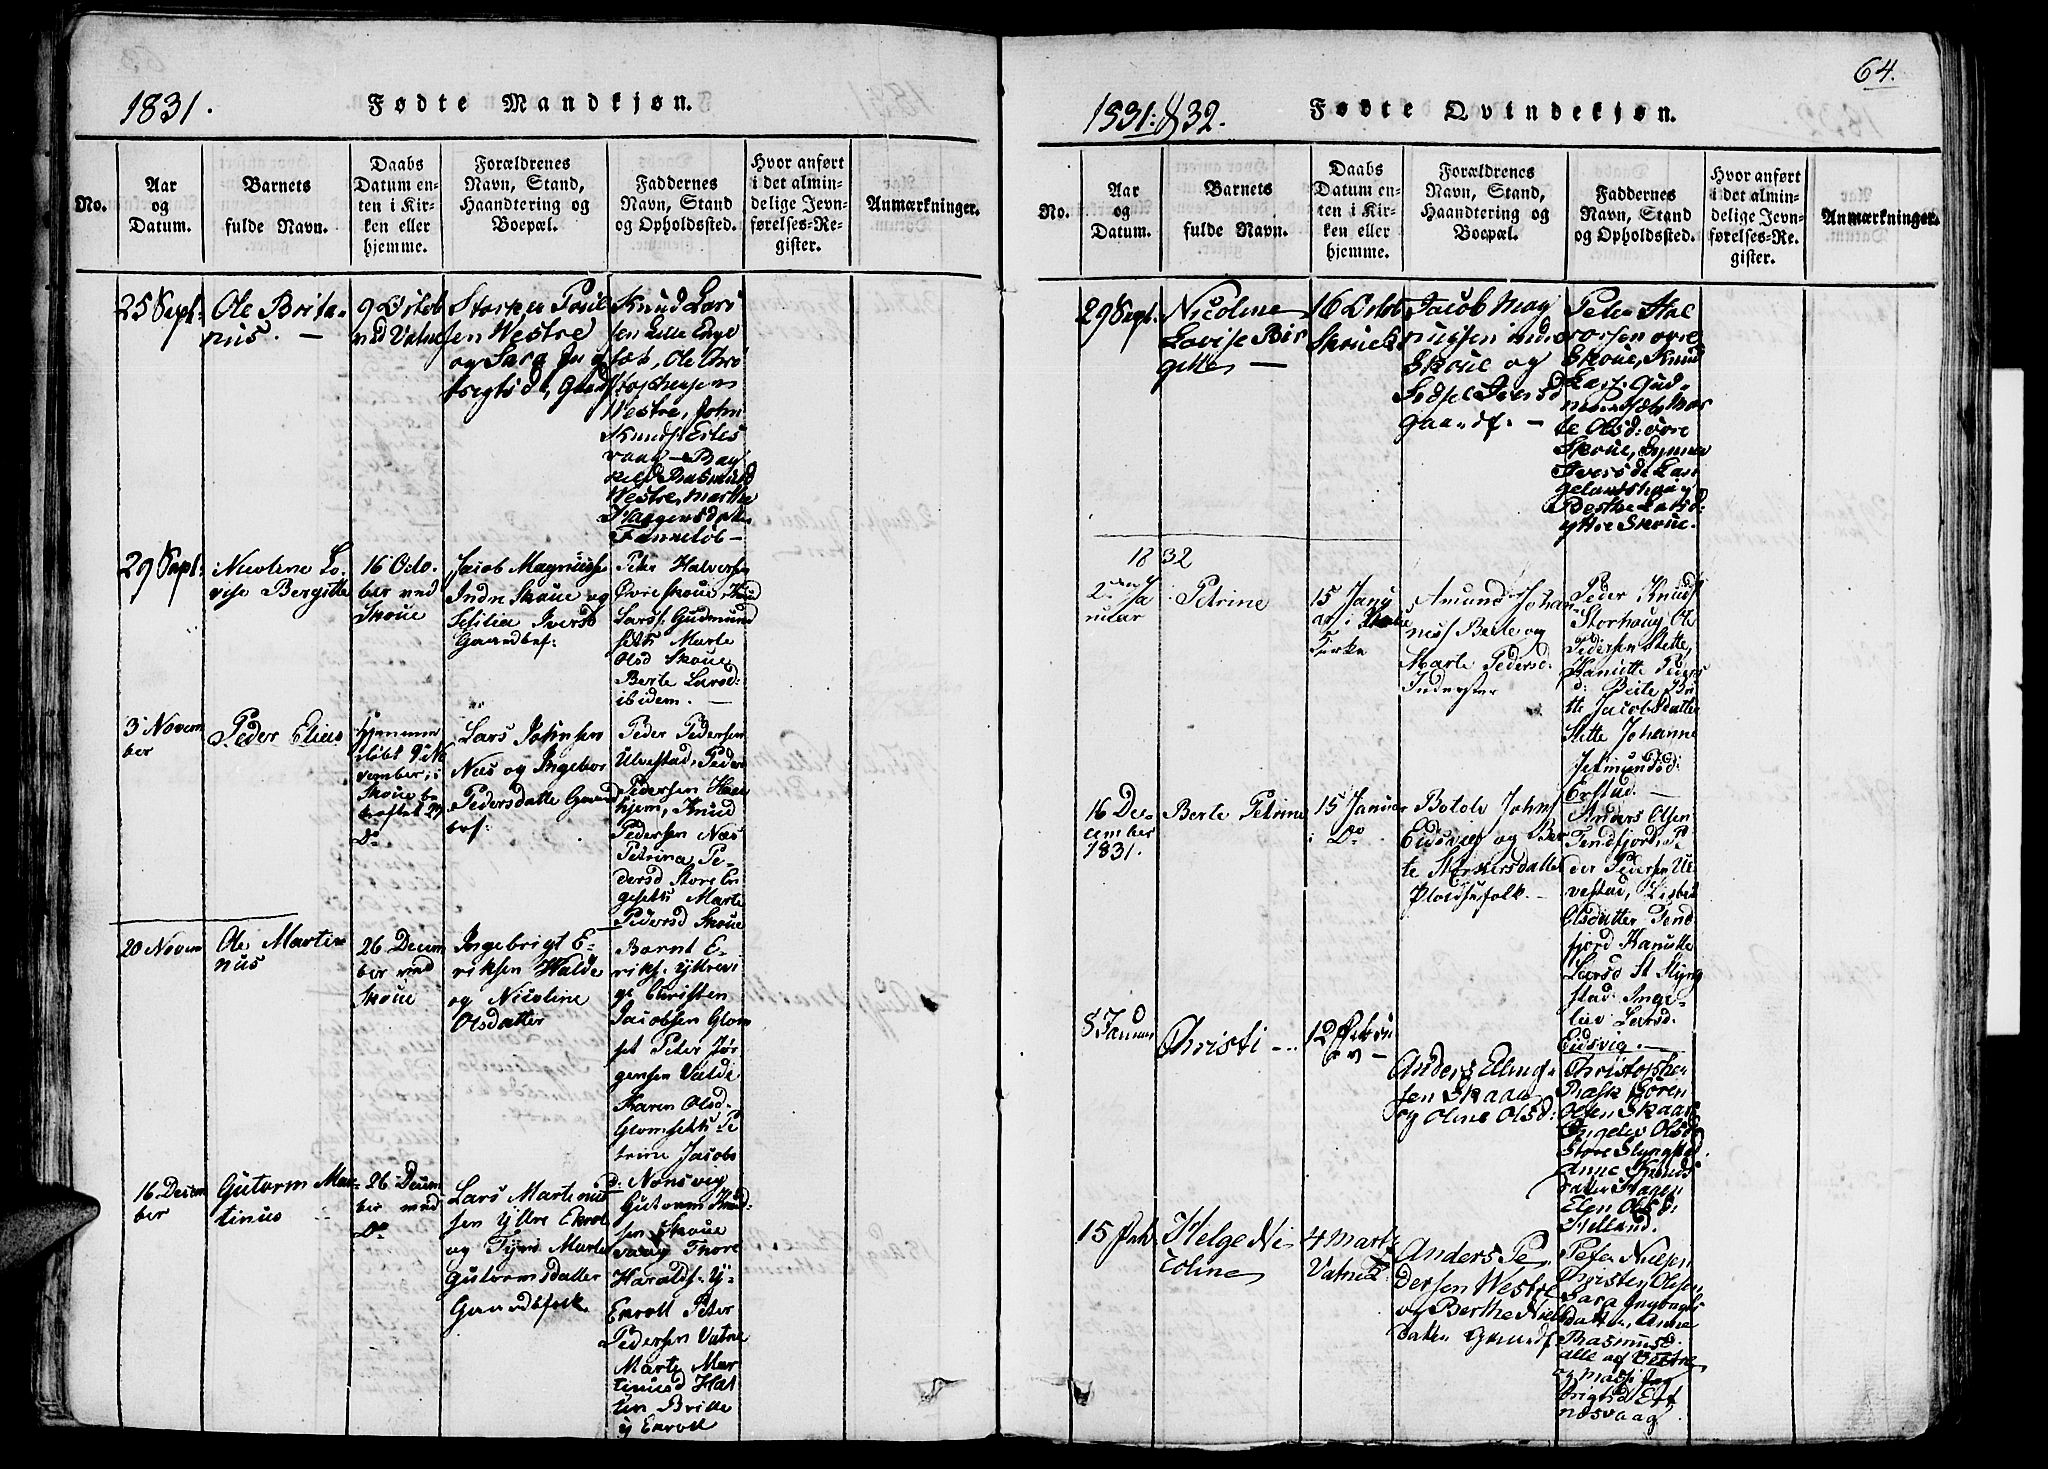 64.
1831.
Fødte Mandkjøn.
No.
Aar
og
Datum.
Barnets
fulde Navn.
Daabs
Datum en-
ten i Kir-
ken eller
hjemme.
Forældrenes
Navn, Stand,
Haandtering og
Boepæl.
Faddernes
Navn, Stand
og Opholdssted.
Hvor anført
i det almin-
delige Jevn-
førelses-Re-
gister.
Anmærkninger.
25 Sept:
Ole Brita-
nius. —
9 Octob
ved Vatne
sen Westre
og Sara
Knud Lars
sen Lille Enge
Westre, John
Westre, Marthe
29 Sept:
Nicoline Lo-
vise Bergitte
16 Octo-
ber ved
Skoue
Jacob Magnuss
Indre Skoue og
Sesilia Iversd
Gaardbef:
Peter Halversen
Øvre Skoue Knud
Larss. Gudmund
sæth Marte
Olsd Skoue
Berte Larsd:
ibidem. —
3 Novem
ber
Peder Elias
hjemme
døbt 9 No
vember, i
Skoue be
kræftet 27
Do
Lars Johnsen
Næs og Ingebor
Pedersdatte Gaard
bef:
Peder Pedersen
Ulvestad, Peder
Pedersen Hae
hjem, Knud
Pedersen Næs
Petrina Pe-
dersd Store En
gesæth Marte
Pedersd Skoue
20 Novem
Ole Marti-
nus
26 Decem
ber ved
Skoue
Ingebrigt E-
riksen Walde
og Nicoline
Olsdatter
Bernt E-
riks. Yttrevi
ge Christen
Jacobsen Glom
set Peter Jør
gensen Valde
Karen Olsd-
Glomseth Pe
trine Jacobs
d: Nonsvig
16 Decem
ber
Gutorm Mar-
tinus
26 Decem
ber ved
Do
Lars Martinus
sen Yttre Ekrol
og Marte
Gutormsdatter
Gaardbefolk.
Gutorm Knud-
sen Skoue
vaag Thore
Haralds: Y-
Ekroll Peter
Pedersen Vatne
Marte Mar
tinusd Hat
len Britte
Y Ekroll
1831: & 32.
Fødte Qvindekjøn.
No.
Aar
og
Datum.
Barnets
fulde Navn.
Daabs
Datum en-
ten i Kir-
ken eller
hjemme.
Forældrenes
Navn, Stand,
Haandtering og
Boepæl.
Faddernes
Navn, Stand
og Opholdssted.
Hvor anført
i det almin-
delige Jevn-
førelses-Re-
gister.
Anmærkninger.
29 Sept.
Nicoline
Lovise Bir
gitte —
16 Octob
Skoue k.
Jacob Mag
nussen indre
Skoue og
Sidsel Iversd
gaardf. —
Peter Hal
vorsen øvre
Skoue, Knud
Lars. Gud-
mundsæt, Mar
te Olsd: øvre
Skoue, Synneve
Iversdt Lan
gelandshoug
Berthe Larsd:
yttre Skoue.
1832
2den Ja
nuar
Petrine
15 Janu
ar i Skoue
Kirke
Amund Johan
nesf Beite og
Marte Pedersd:
Inderster
Peder Knuds
Storhaug Ole
Pedersen Slette
Hanutte Peders
d: Beite Bri
tte Jacobsdatter
Slette Johanne
Jetmundsd:
Erstad. —
16 De-
cember
1831.
Berte Petrine
15 Januar
i Do
Botolv Johns
Eidsvig og Ber
te Sterkersdatter
Pladsefolk. —
Anders Olsen
Tenfjord, Pe
der Pedersen Ul
vestad, Lisbet
Olsdatter Ten
fjord Hanutte
Larsd St Slyng
stad Inge-
Larsd:
Eidsvig. —
8 Januar
Christi —
12 Febru
ar —
Anders Elling-
sen Skaar
og Oline Olsd:
Christopher
Rask Søren
Olsen Skaar
Ingelev Olsd
Store Slyngstad
Anne Knuds
datter Hagen
Elen Olsd:
Helland.
15 Feb.
Helge Ni
coline
4 Marts
Vatne
Anders Pe
dersen Westre
og Berthe Niels
datter Gaardf.
Peter Nielsen
Christen Olsen,
Sara Ingbrigts
datter, Anne
Rasmusd.
alle af Vestre
og
brigtsd Est
næsvaag